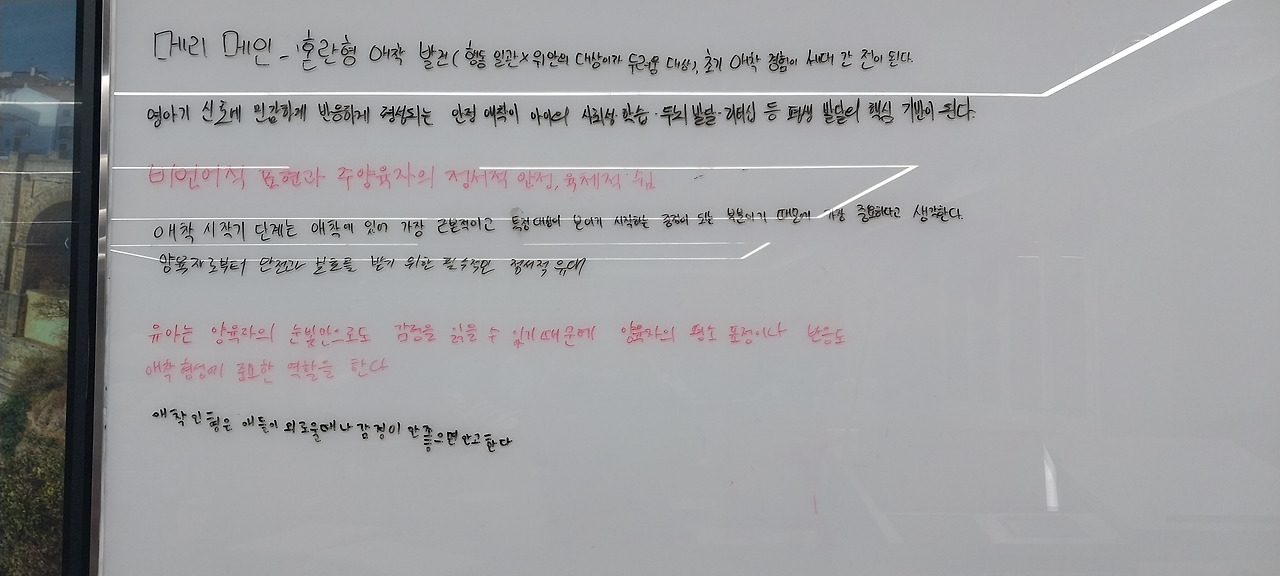 메리 메인 - 혼란형 애착 발견 (행동 일관 X 위안의 대상이자 두려움 대상), 초기 애착 경험이 세대 간 전이 된다.
영아기 신호에 민감하게 반응하게 형성되는 안정 애착이 아이의 사회성·학습·두뇌 발달· 등 평생 발달의 핵심 기반이 된다.
비언어적 표현과 주양육자의 정서적 안정, 육체적 쉼
애착 시작기 단계는 애착에 있어 가장 근본적이고 특정대상이 보이기 시작하는 되는 부분이기 때문에 가장 중요하다고 생각한다.
양육자로부터 안전과 보호를 받기 위한 필수적인 정서적 유대
유아는 양육자의 눈빛만으로도 감정을 읽을 수 있기 때문에 양육자의 평소 표정이나 반응도
애착 형성에 중요한 역할을 한다
애착인형은 애들이 외로울때나 감정이 안좋으면 안고한다